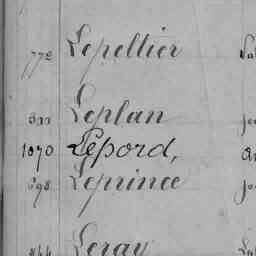 772 Lepellier
Leplan
1070 Lepord,
698 Leprince
844 Leray